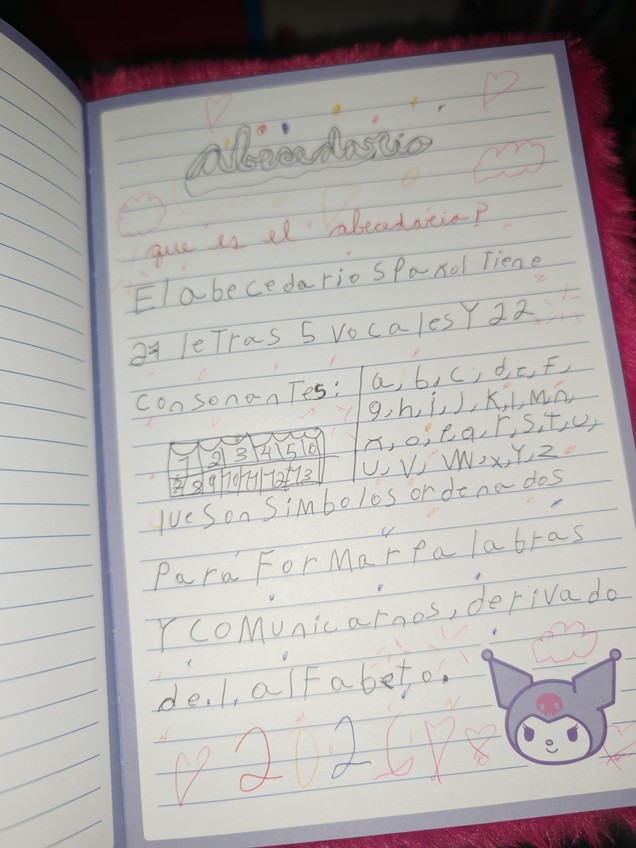 abecedario
que es el abecedario?
El abecedario spaxol Tiene
27 leTras 5 vocales Y 22
consonanTes:
a, b, c, d, e, F,
g, h, i, J, K, l, M, n,
x, o, p, q, r, s, T, u,
u, V, W, x, Y, z
1 2 3 4 5 6
7 8 9 10 11 12 13
que son simbolos ordenados
Para ForMar palabras
Y coMunicarnos, derivado
de.l. alFabeto.
2026